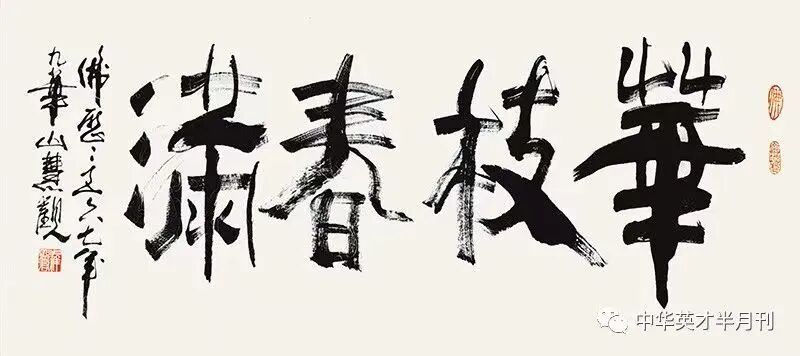 華枝春滿
佛歷二五六七年
九華山慧觀
中华英才半月刊